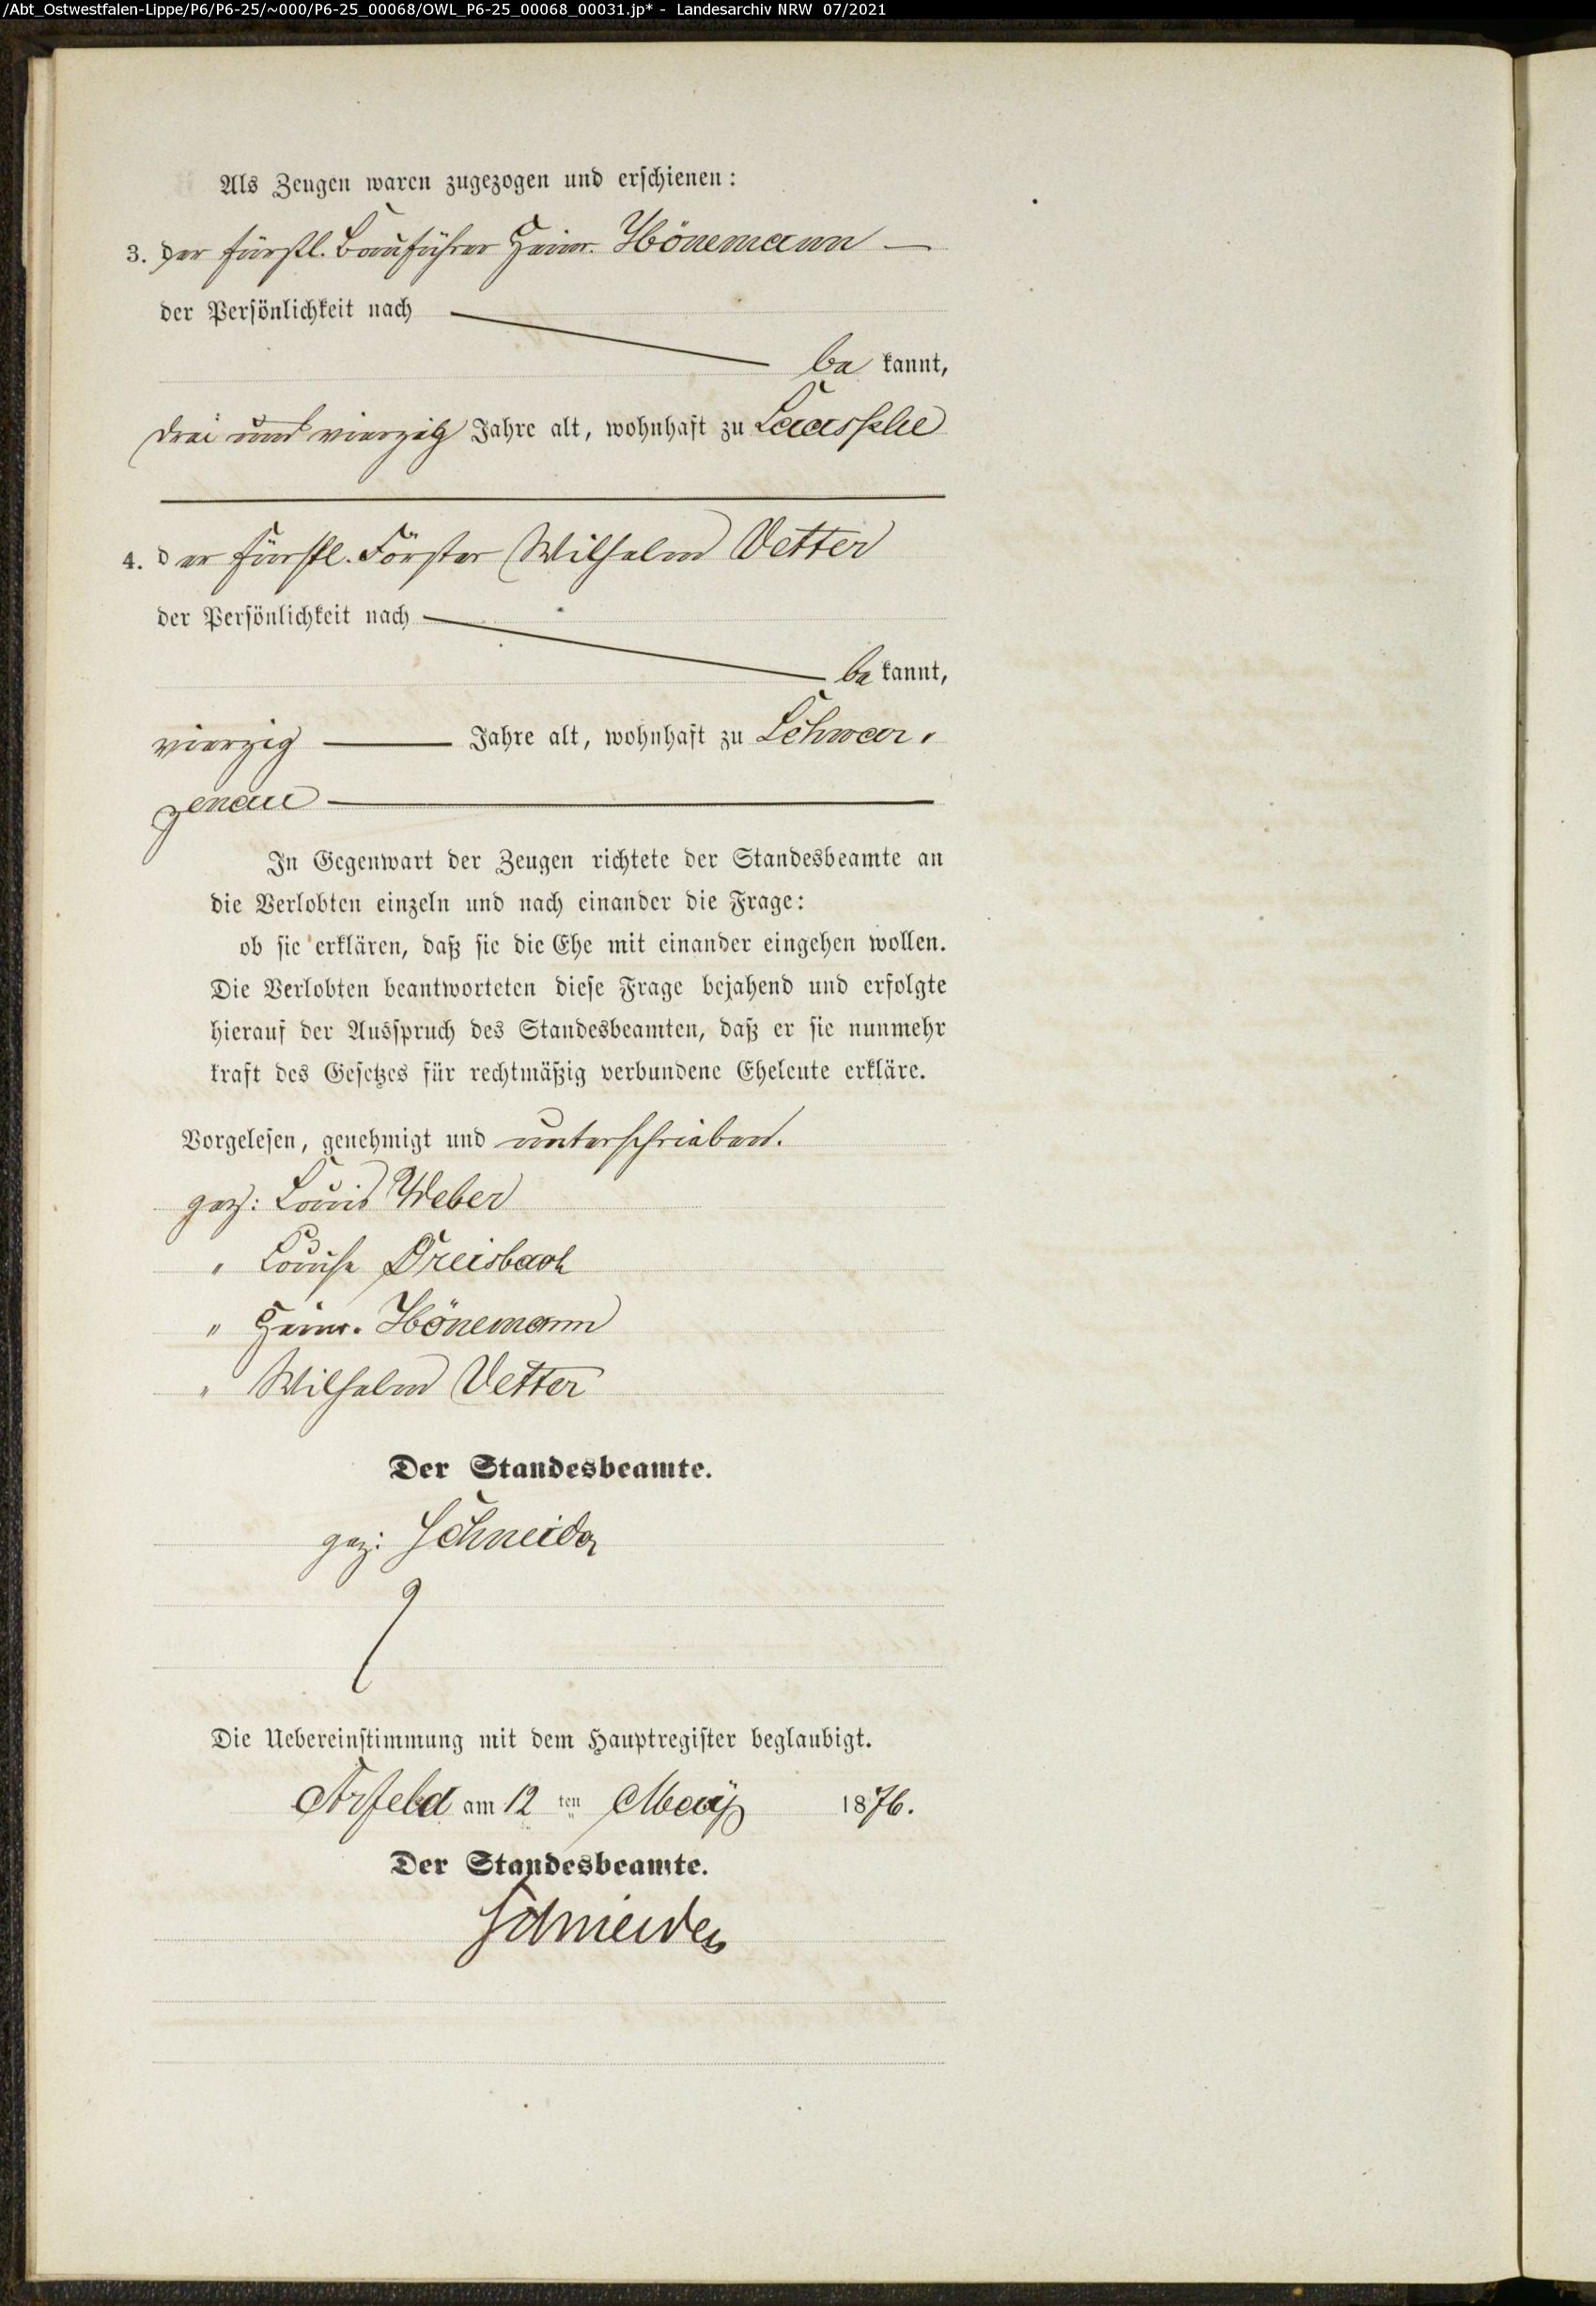 /Abt_Ostwestfalen-Lippe/P6/P6-25/~000/P6-25_00068/OWL_P6-25_00068_00031.jp* - Landesarchiv NRW 07/2021
Als Zeugen waren zugezogen und erschienen:
3. der fürstl. Bauführer Heinr. Hönemann —
der Persönlichkeit nach
be kannt,
drei und vierzig Jahre alt, wohnhaft zu Laasphe
4. der fürstl. Förster Wilhelm Vetter
der Persönlichkeit nach
be kannt,
vierzig — Jahre alt, wohnhaft zu Schwar-
zenau —
In Gegenwart der Zeugen richtete der Standesbeamte an
die Verlobten einzeln und nach einander die Frage:
ob sie erklären, daß sie die Ehe mit einander eingehen wollen.
Die Verlobten beantworteten diese Frage bejahend und erfolgte
hierauf der Ausspruch des Standesbeamten, daß er sie nunmehr
kraft des Gesetzes für rechtmäßig verbundene Eheleute erkläre.
Vorgelesen, genehmigt und unterschrieben.
gez: Louis Weber
" Louise Dreisbach
" Heinr. Hönemann
" Wilhelm Vetter
Der Standesbeamte.
gez: Schneider
Die Uebereinstimmung mit dem Hauptregister beglaubigt.
Arfeld am 12 ten May 1876.
Der Standesbeamte.
Schneider